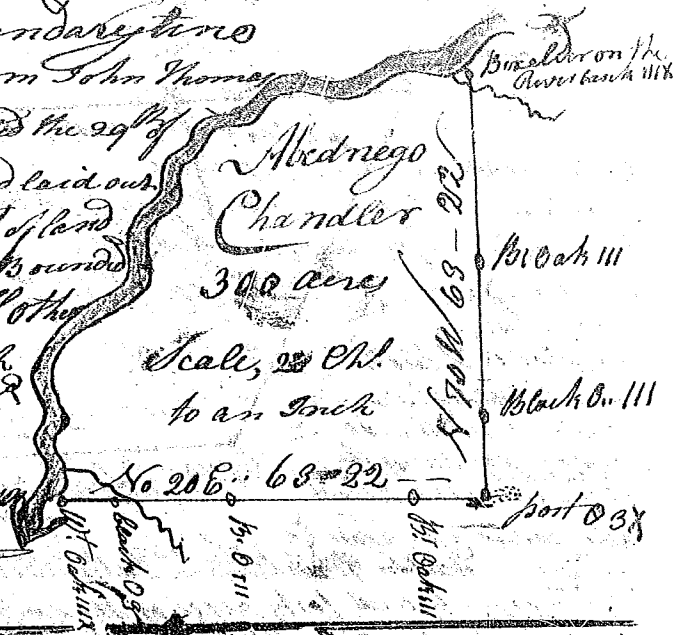 m John Thomas
d the 29th of
d laid out
of land
Bounded
other
on the
River bank IIIX
Abednego
Chandler
300 acres
Scale, 20 Chs.
to an Inch
N 70 W 63 - 22
Bl Oak III
Black O.. III
No 20 E.. 63 = 22 - -
post O 3X
Wt. Oak IIIX
black Og
B. O III
Bl Oak III